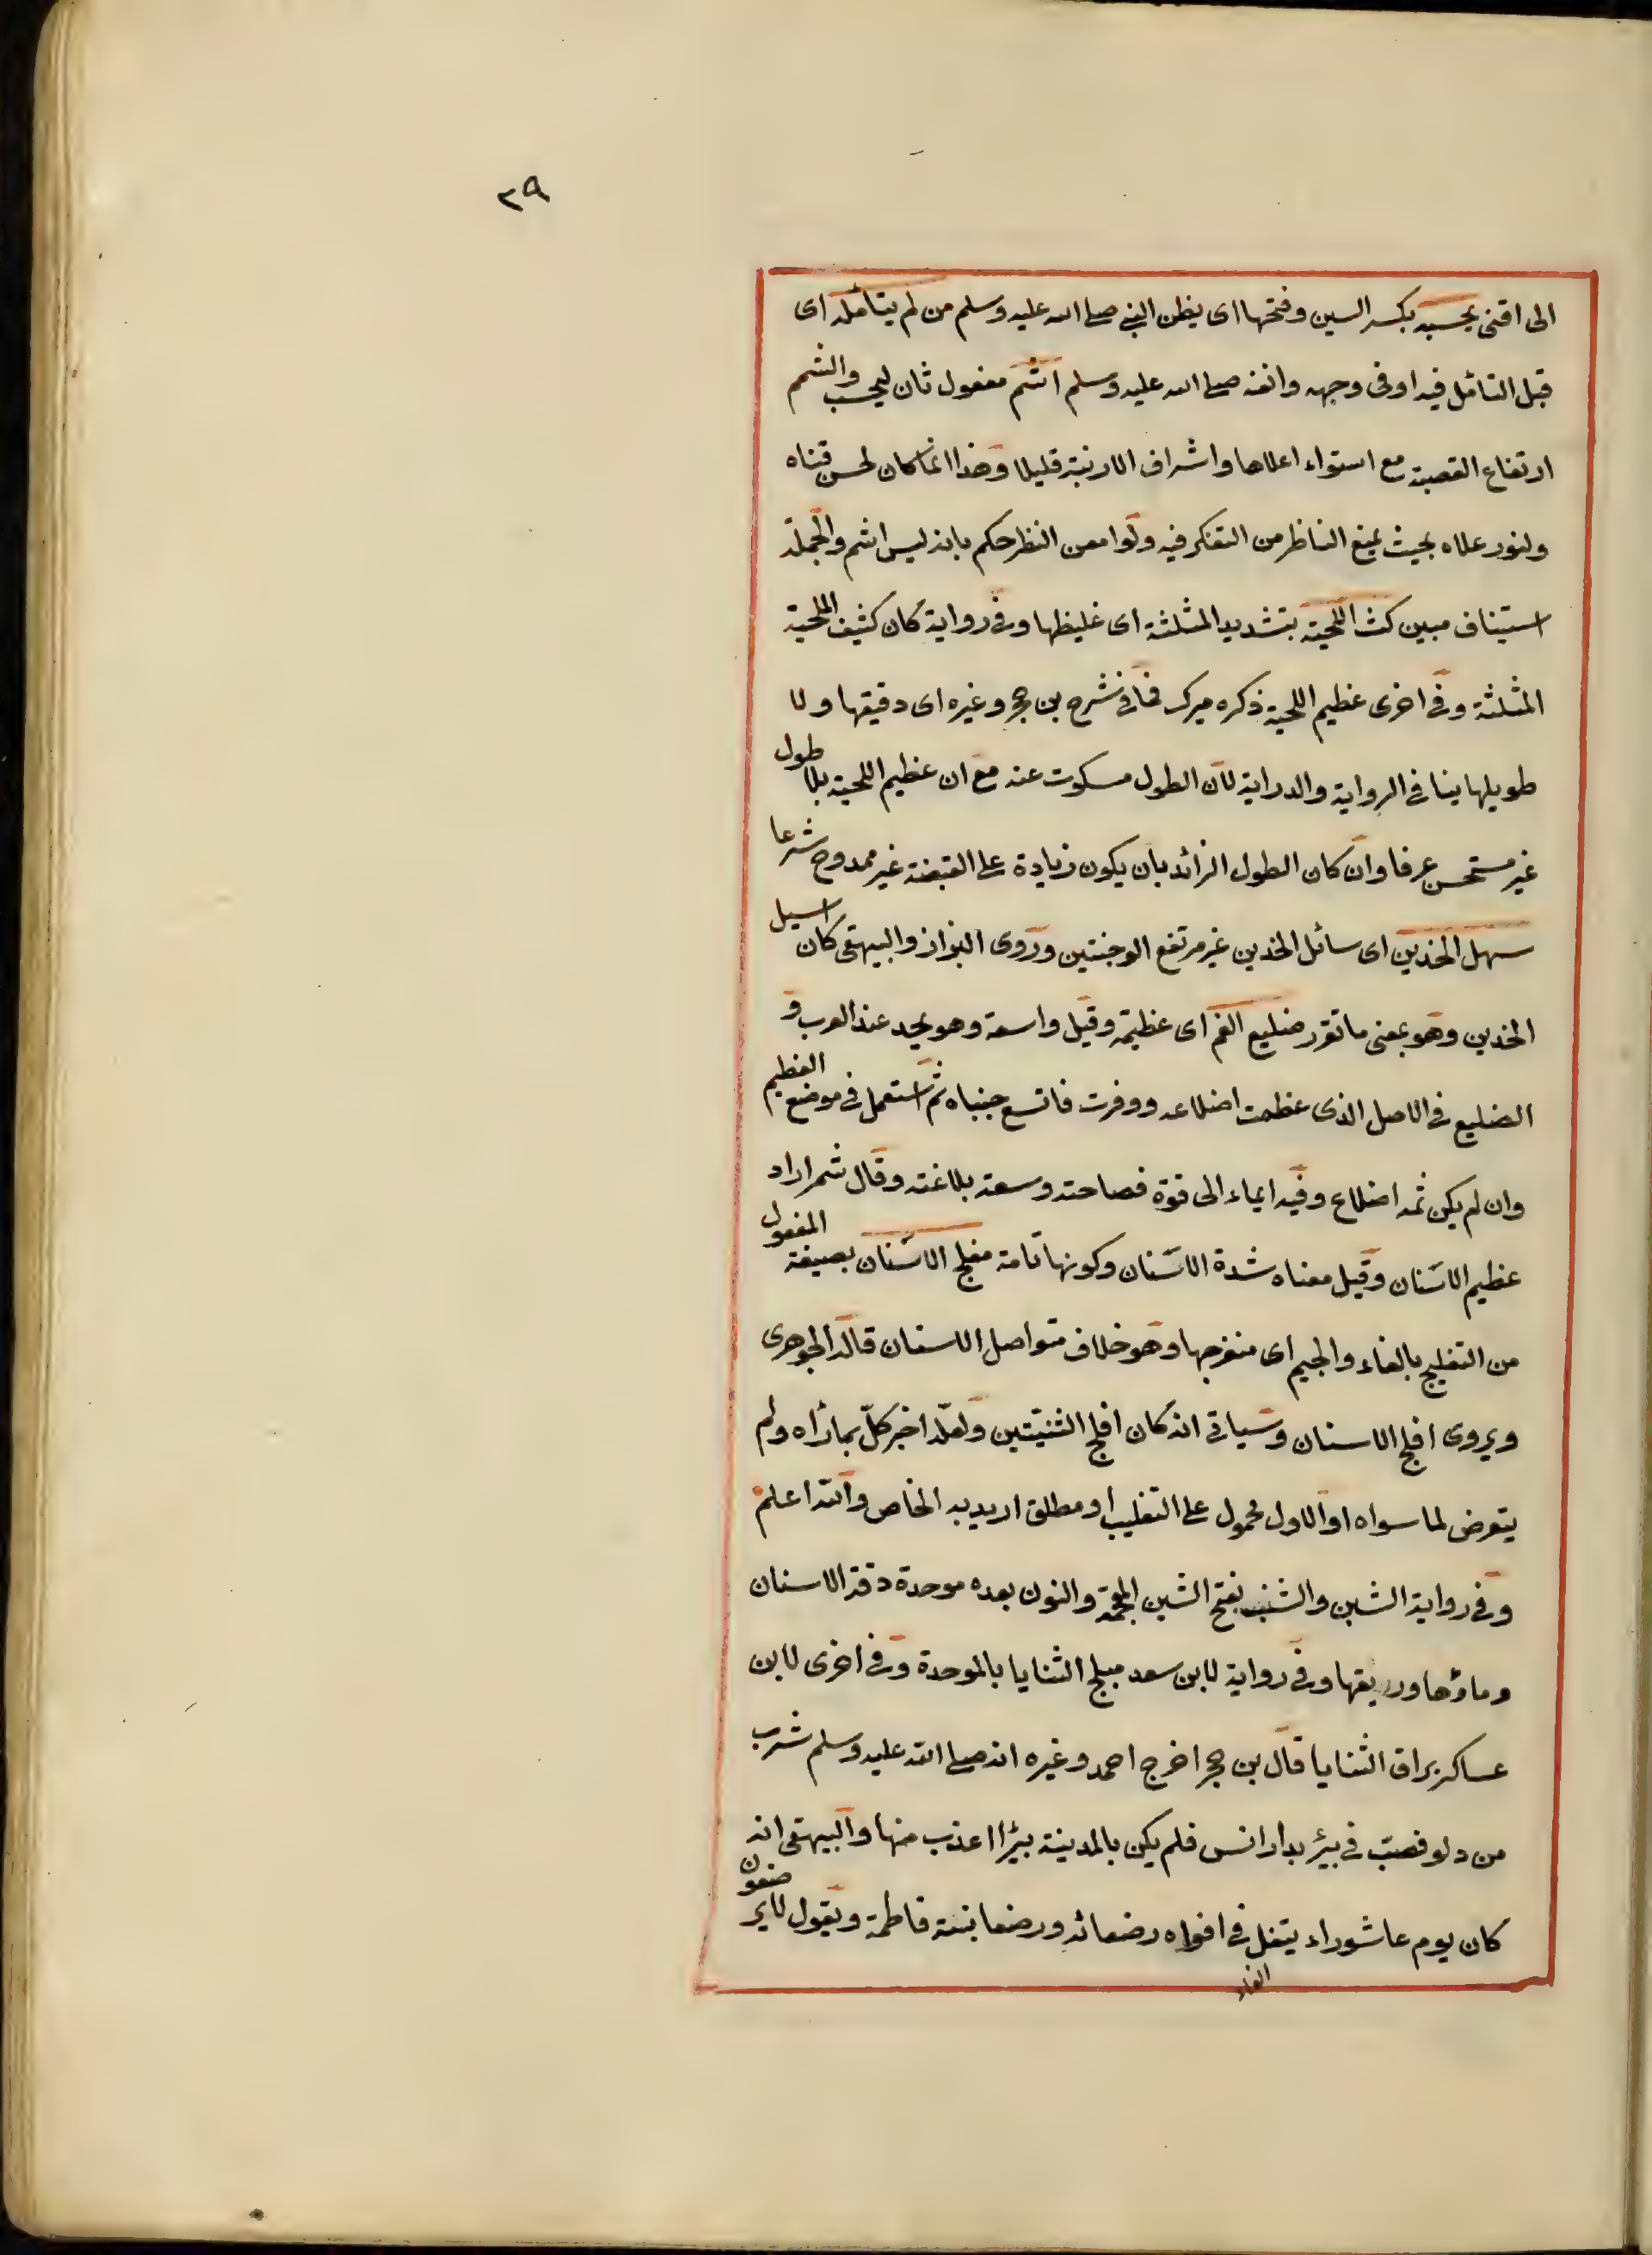 ٢٩
الى اقنى يحسبه بكسر السين وفتحها اى يظن النبي صلى الله عليه وسلم من لم يتأمله اى
قبل التأمل فيه او فى وجهه وانفه صلى الله عليه وسلم اشم مفعول ثان ليحسب والشمم
ارتفاع القصبة مع استواء اعلاها واشراف الارنبة قليلا وهذا انما كان لحسن قناه
ولنور علاه بحيث يمنع الناظر من التفكر فيه ولو امعن النظر حكم بانه ليس اشم والجملة
استيناف مبين كث اللحية بتشديد المثلثة اى غليظها وفى رواية كان كثيف اللحية
المثلثة وفى اخرى عظيم اللحية ذكره ميرك فما فى شرح بن حجر وغيره اى دقيقها ولا
طويلها ينافى الرواية والدراية لان الطول مسكوت عنه مع ان عظيم اللحية بلا طول
غير مستحسن عرفا وان كان الطول الزائد بان يكون زيادة على القبضة غير ممدوح شرعا
سهل الخدين اى سائل الخدين غير مرتفع الوجنتين وروى البزاز والبيهقى كان اسيل
الخدين وهو بمعنى ما تقرر ضليع الفم اى عظيمة وقيل واسعة وهو يحمد عند العرب و
الضليع فى الاصل الذى عظمت اضلاعه ووفرت فاتسع جنباه ثم استعمل فى موضع العظيم
وان لم يكن ثمه اضلاع وفيه ايماء الى قوة فصاحته وسعة بلاغته وقال شمر اراد
عظيم الاسنان وقيل معناه شدة الاسنان وكونها تامة مفلج الاسنان بصيغة المفعول
من التفليج بالفاء والجيم اى منفرجها وهو خلاف متواصل الاسنان قاله الجوهرى
ويروى افلج الاسنان وسياتى انه كان افلج الثنيتين ولعله اخبر كلّ بما رأه ولم
يتعرض لما سواه او الاول محمول على التغليب او مطلق اريد به الخاص والله اعلم
وفى رواية الشبن والشنب بفتح الشين المعجمة والنون بعده موحدة دقة الاسنان
وماؤها وريقها وفى رواية لابن سعد مبلج الثنايا بالموحدة وفى اخرى لابن
عساكر براق الثنايا قال بن حجر اخرج احمد وغيره انه صلى الله عليه وسلم شرب
من دلو فصبّ فى بئر بدار انس فلم يكن بالمدينة بيرا اعذب منها والبيهقى انه
كان يوم عاشوراء يتفل فى افواه رضعائه ورضعا بنته فاطمة ويقول لا يرضعون